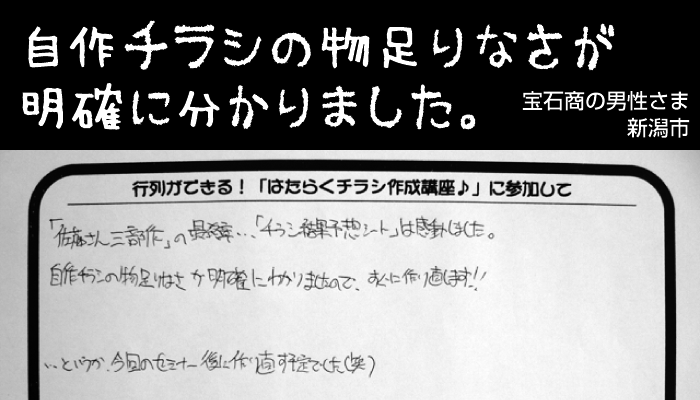 自作チラシの物足りなさが
明確に分かりました。
宝石商の男性さま
新潟市
行列ができる!「はたらくチラシ作成講座♪」に参加して
「佐藤さん三部作」の最終章…「チラシ結果予想シート」は感動しました。
自作チラシの物足りなさが明確にわかりましたので、すぐに作り直します!!
…というか、今回のセミナー後に作り直す予定でした(笑)